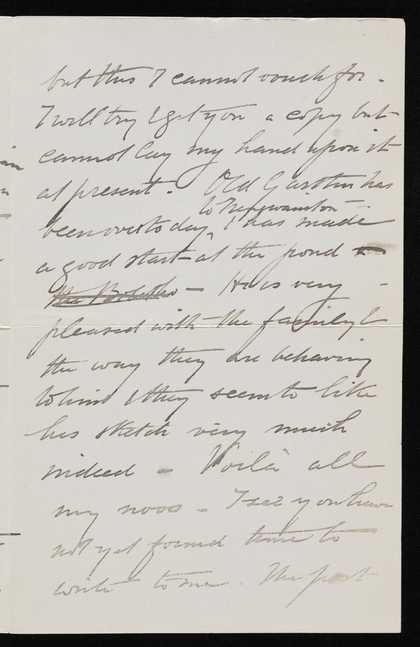 but this I cannot vouch for -
I will try & get you a copy but
cannot lay my hand upon it
at present - Old Garstin has
to
been over to day, & has made
a good start at the pond
- He is very -
pleased with the family &
the way they are behaving
to him & they seem to like
his sketch very much
indeed - Voilà all
my noos - I see you have
not yet found time to
write to me. The post